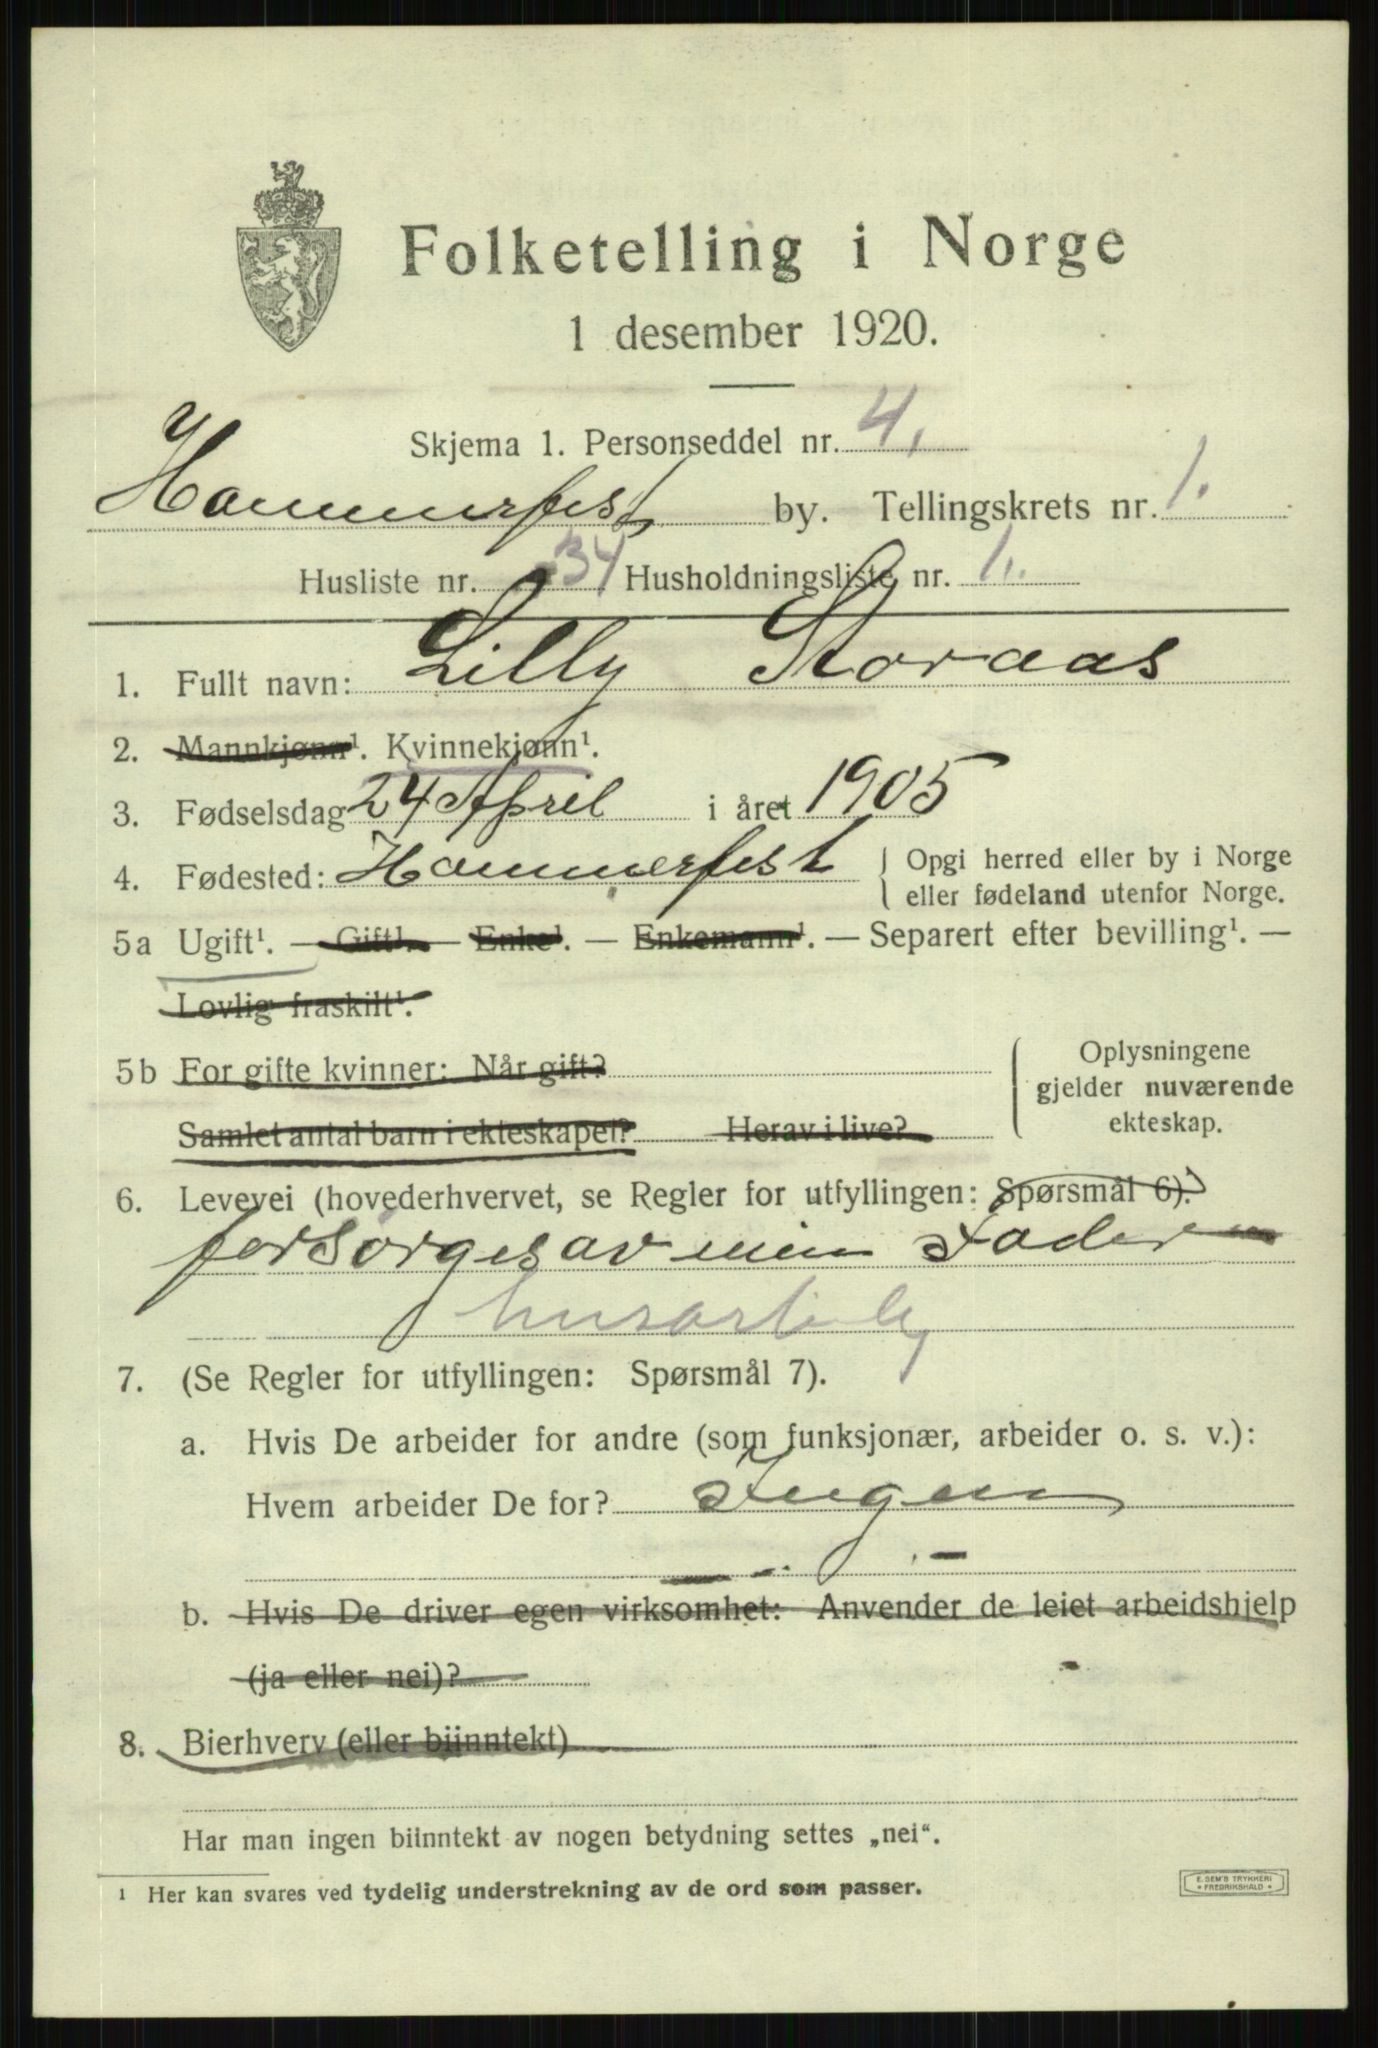 Folketelling i Norge
1 desember 1920.
Skjema 1. Personseddel nr. 4.
Hammerfest by. Tellingskrets nr. 1.
Husliste nr. 34 Husholdningsliste nr. 1.
1. Fullt navn: Lilly Storaas
2. Mannkjønn¹. Kvinnekjønn¹.
3. Fødselsdag 24 April i året 1905
4. Fødested: Hammerfest { Opgi herred eller by i Norge
eller fødeland utenfor Norge.
5a Ugift¹. — Gift¹. — Enke¹. — Enkemann¹. — Separert efter bevilling¹. —
Lovlig fraskilt¹.
5b For gifte kvinner: Når gift?
Samlet antal barn i ekteskapet? Herav i live?
Oplysningene
gjelder nuværende
ekteskap.
6. Levevei (hovederhvervet, se Regler for utfyllingen: Spørsmål 6).
forsørges av min Fader
husarb.
7. (Se Regler for utfyllingen: Spørsmål 7).
a. Hvis De arbeider for andre (som funksjonær, arbeider o. s. v.):
Hvem arbeider De for? Ingen
b. Hvis De driver egen virksomhet: Anvender de leiet arbeidshjelp
(ja eller nei)?
8. Bierhverv (eller biinntekt)
Har man ingen biinntekt av nogen betydning settes „nei“.
¹ Her kan svares ved tydelig understrekning av de ord som passer.
E. SEM'S TRYKKERI
* FREDRIKSHALD *